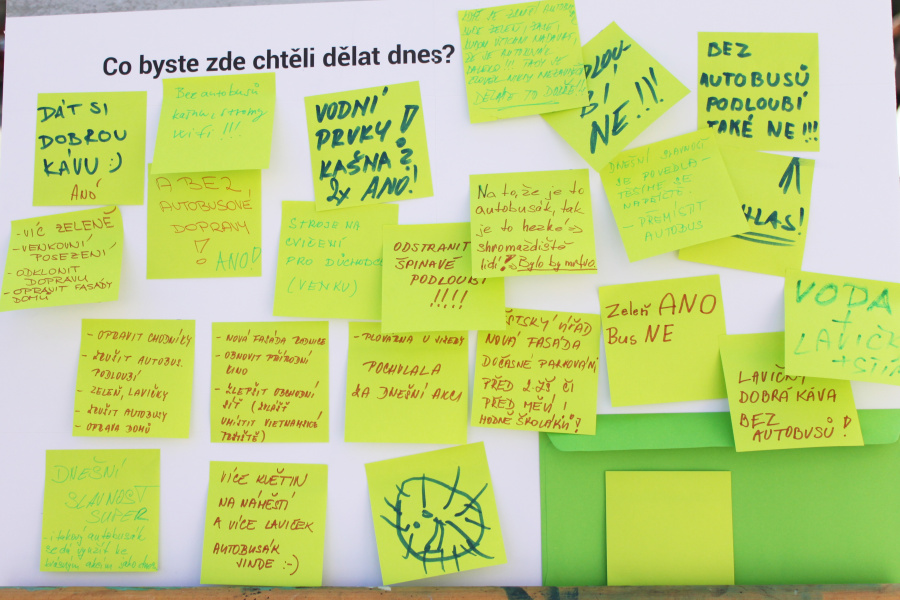 Co byste zde chtěli dělat dnes?
DÁT SI
DOBROU
KÁVU :)
ANO
Bez autobusů
kašna, stromy
wifi !!!
VODNÍ
PRVKY!
KAŠNA?
2x ANO!
DĚLÁTE TO DOBŘE!
NE!!!
BEZ
AUTOBUSŮ
PODLOUBÍ
TAKÉ NE!!!
- VÍC ZELENĚ
- VENKOVNÍ
POSEZENÍ
- ODKLONIT
DOPRAVU
- OPRAVIT FASÁDY
DOMŮ
A BEZ
AUTOBUSOVÉ
DOPRAVY
! ANO!
STROJE NA
CVIČENÍ
PRO DŮCHODCE
(VENKU)
ODSTRANIT
ŠPINAVÉ
PODLOUBÍ
!!!!
Na to, že je to
autobusák, tak
je to hezké
shromaždiště
lidí! Bylo by mrtvo.
DNEŠNÍ SLAVNOST
SE POVEDLA -
TĚŠÍME SE
NA PŘÍŠTĚ.
- PŘEMÍSTIT
AUTOBUS
HLAS!
- OPRAVIT CHODNÍKY
- ZRUŠIT AUTOBUS.
PODLOUBÍ
- ZELEŇ, LAVIČKY
- ZRUŠIT AUTOBUSY
- OPRAVA DOMŮ
- NOVÁ FASÁDA RADNICE
- OBNOVIT PŘÍRODNÍ
KINO
- ZLEPŠIT OBCHODNÍ
SÍŤ (ZVLÁŠŤ
UMÍSTIT VIETNAMSKÉ
TRŽIŠTĚ)
POCHVALA
ZA DNEŠNÍ AKCI
ÚŘAD
NOVÁ FASÁDA
DOČASNÉ PARKOVÁNÍ
PŘED 2. ZŠ ČI
PŘED MŠVI!
HODNĚ ŠKOLÁKŮ!
Zeleň ANO
Bus NE
VODA
+
LAVIČK
+ STÍN
LAVIČKY
DOBRÁ KÁVA
BEZ
AUTOBUSŮ!
DNEŠNÍ
SLAVNOST
SUPER
- i takový autobusák
VÍCE KVĚTIN
NA NÁMĚSTÍ
A VÍCE LAVIČEK
AUTOBUSÁK
JINDE :-)